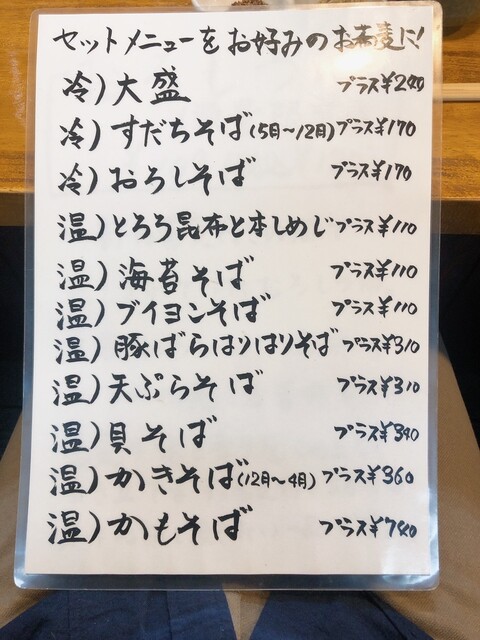 セットメニューをお好みのお蕎麦に!
冷)大盛 プラス¥240
冷)すだちそば(5月〜12月)プラス¥170
冷)おろしそば プラス¥170
温)とろろ昆布と本しめじプラス¥110
温)海苔そば プラス¥110
温)ブイヨンそば プラス¥110
温)豚ばらはりはりそば プラス¥310
温)天ぷらそば プラス¥310
温)貝そば プラス¥340
温)かきそば(12月〜4月) プラス¥360
温)かもそば プラス¥740